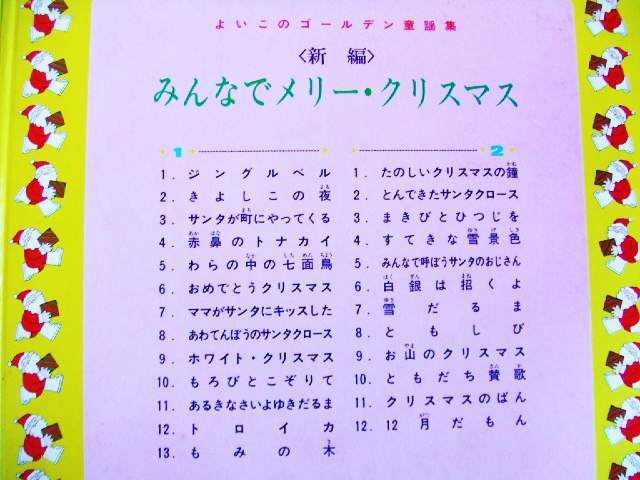 よいこのゴールデン童謡集
〈新 編〉
みんなでメリー・クリスマス
1
1. ジングルベル
2. きよしこの夜
3. サンタが町にやってくる
4. 赤鼻のトナカイ
5. わらの中の七面鳥
6. おめでとうクリスマス
7. ママがサンタにキッスした
8. あわてんぼうのサンタクロース
9. ホワイト・クリスマス
10. もろびとこぞりて
11. あるきなさいよゆきだるま
12. トロイカ
13. もみの木
2
1. たのしいクリスマスの鐘
2. とんできたサンタクロース
3. まきびとひつじを
4. すてきな雪景色
5. みんなで呼ぼうサンタのおじさん
6. 白銀は招くよ
7. 雪だるま
8. ともしび
9. お山のクリスマス
10. ともだち賛歌
11. クリスマスのばん
12. 12月だもん